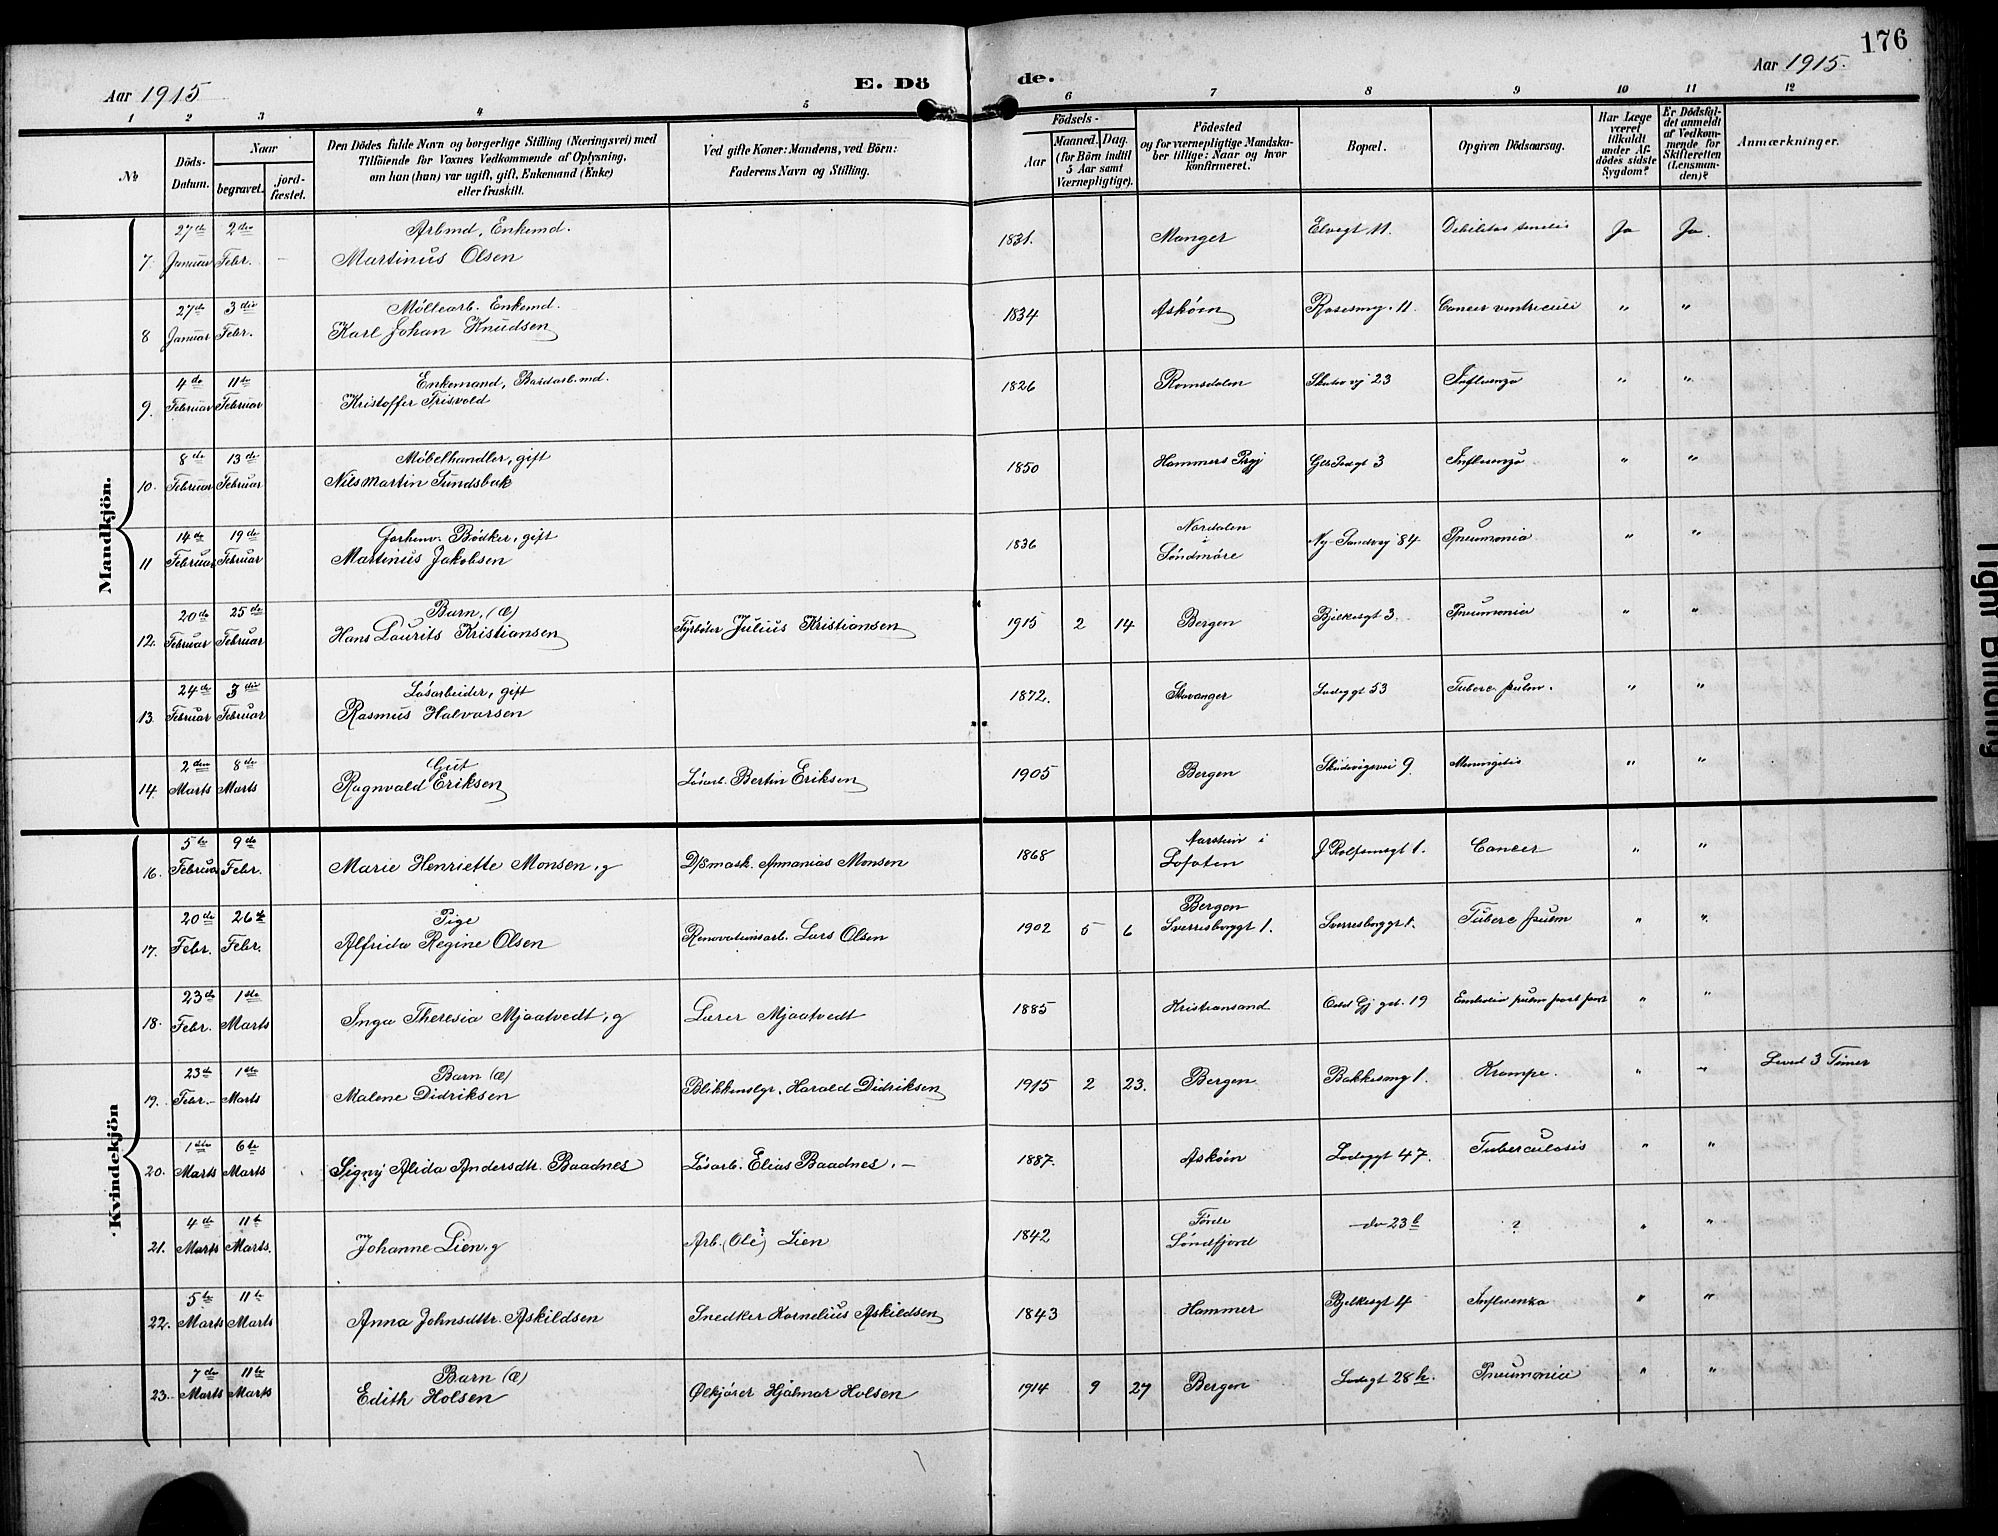 176
Aar 1915
E. Dö de.
Aar 1915.
1 2 3 4 5 6 7 8 9 10 11 12
No
Döds-Datum.
Naar
begravet.
jord-fæstet.
Den Dödes fulde Navn og borgerlige Stilling (Næringsvei) med
Tilföiende for Voxnes Vedkommende af Oplysning,
om han (hun) var ugift, gift, Enkemand (Enke)
eller fraskilt.
Ved gifte Koner: Mandens, ved Börn:
Faderens Navn og Stilling.
Födsels-
Aar
Maaned. Dag.
(for Börn indtil
5 Aar samt
Værnepligtige).
Födested
og for værnepligtige Mandska-
ber tillige: Naar og hvor
konfirmeret.
Bopæl.
Opgiven Dödsaarsag.
Har Læge
været
tilkaldt
under Af-
dödes sidste
Sygdom?
Er Dödsfal-
det anmeldt
af Vedkom-
mende for
Skifteretten
(Lensman-
den)?
Anmærkninger.
Mandkjön.
27de 2den Arbmd, Enkemd.
7. Januar Febr. - Martinus Olsen 1831. Manger Elvegt 11. Debilitas senilis Ja Ja.
27de 3die Mølllearb. Enkemd.
8 Januar Febr. Karl Johan Knudsen 1834 Askøen Rosesmg. 11. Cancer ventriculi " "
4de 11te Enkemand, Bordarb.md.
9. Februar Februar Kristoffer Trisvold 1826 Romsdalen Skutevj 23 Influenza " "
8de 13de Møbelhandler, gift
10. Februar Februar Nils Martin Sundsbak 1850 Hammers Prgj 3 Influenza " "
14de 19de Forhenv. Bødker, gift
11 Februar Februar Martinus Jakobsen 1836 Nordalen i Søndmøre Ny-Sandvej 84 Pneumonia " "
20de 25de Barn, (Æ)
12. Februar Februar Hans Laurits Kristiansen Fyrbøter Julius Kristiansen 1915 2 14 Bergen Bjelkesgt 3. Pneumonia " "
24de 3die Løsarbeider, gift
13. Februar Februar Rasmus Halvorsen 1872. Stavanger Ladeggt 53 Tuberc. pulm. " "
2den 8de Gut
14. Marts Marts Ragnvald Eriksen Løsarb. Bertin Eriksen 1905 Bergen Skudevigsvei 9. Meningitis " "
Kvindekjön
5te 9de
16. Februar Febr. Marie Henriette Monsen, g D/Smask. Annanias Monsen 1868 i Lofoten J Rolfsensgt 1. Cancer " "
20de 26de Pige
17. Febr. Febr. Alfrida Regine Olsen Renovationsarb. Lars Olsen 1902 5 6 Bergen Sverresborggt 1. Sverresborggt 1. Tuberc pulm " "
23de 1ste
18. Febr. Marts Inga Theresia Mjaatvedt, g Lærer Mjaatvedt 1885 Kristiansand 19 Embolia pulm post part " "
23de 1ste Barn (Æ)
19. Febr. Marts Malene Didriksen Blikkenslgr. Harald Didriksen 1915 2 23. Bergen Bakkesmg 1. Krampe. " " Levet 3 Timer
1ste 6te
20. Marts Marts Signy Alida Andersdtr. Baadnes Løsarb. Elias Baadnes. - 1887. Askøen Ladeggt 47. Tuberculosis " "
4de 11te
21. Marts Marts. Johanne Lien, g Arb. (Ole?) Lien 1842 Førde Søndfjord - do 23 b ? " "
5te 11te
22. Marts Marts Anna Johnsdttr. Askildsen Snedker Kornelius Askildsen 1843 Hammer Bjelkesgt 4 Influenza " "
7de 11te Barn (Æ)
23. Marts Marts Edith Holsen Ølkjører Hjalmar Holsen 1914 9 27 Bergen Ladegt 28 b. Pneumonia " "
Tight Binding